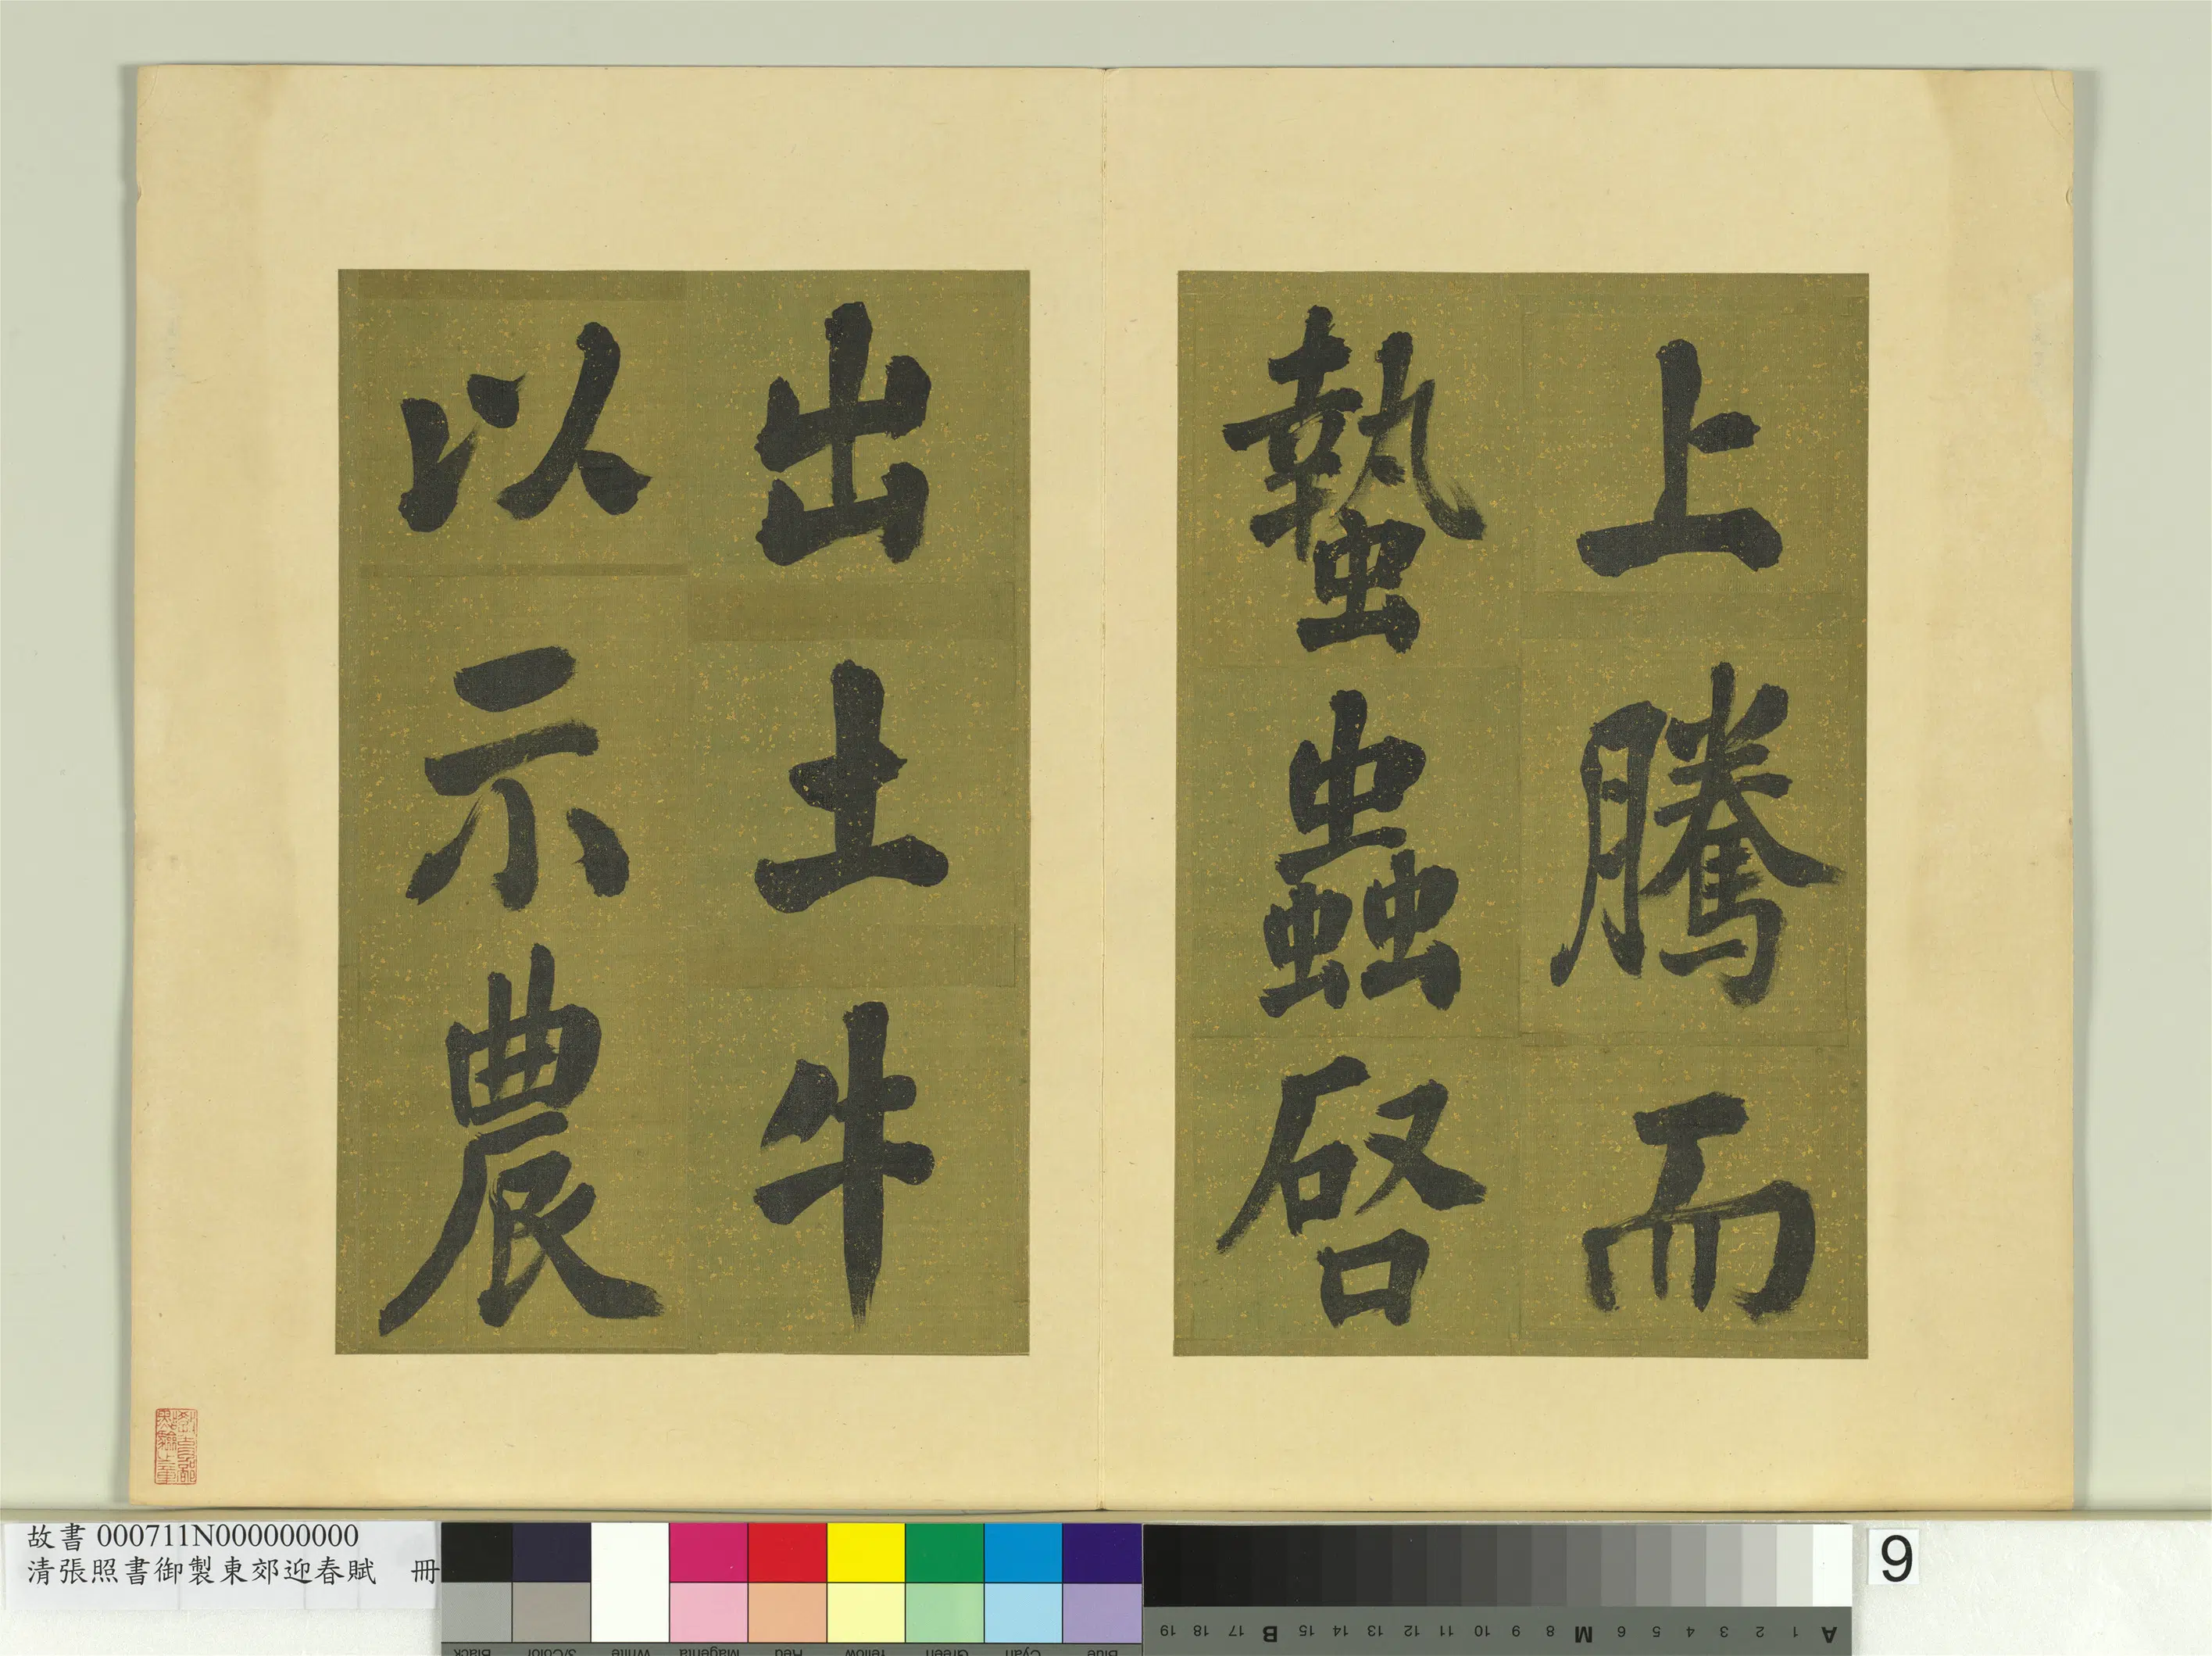 上騰而
蟄蟲啓
出土牛
以示農
故書 000711N000000000
清張照書御製東郊迎春賦 冊
Black 3/Color White Magenta Red Yellow Green Cyan Blue
19 18 17 B 15 14 13 12 11 10 9 8 M 6 5 4 3 2 1 A
9